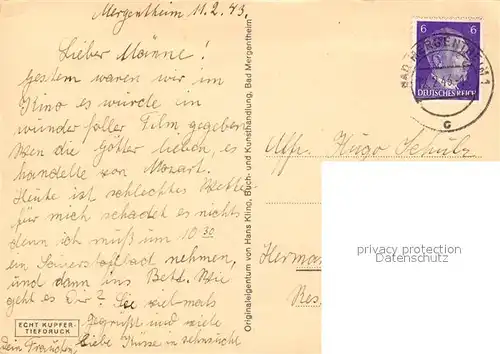 Mergentheim 11.2.43.
Lieber Männe!
Gestern waren wir im
Kino es wurde ein
wunder foller Film gegeben
Wen die Götter lieben, es
handelte von Mozart.
Heute ist schlechtes Wetter
für mich schadet es nichts
denn ich muß um 10 30
ein Sauerstoffbad nehmen,
und dann ins Bett. Wie
geht es Dir? Sei viel mals
gegrüßt und viele
Liebe Küsse in sehnsucht
Dein Frauchen
ECHT KUPFER-
TIEFDRUCK
Originaleigentum von Hans Kling, Buch- und Kunsthandlung, Bad Mergentheim
6 6
DEUTSCHES REICH
BAD MERGENTHEIM 1
c
Hugo Schulz
Herma
Res
personal data protection
Persönlichkeitsdaten Schutz